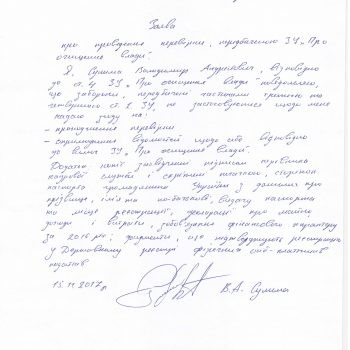 Заява
про проведення перевірки, передбаченою ЗУ „Про
очищення влади".
Я, Сулима Володимир Андрійович, відповідно
до ст. 4 ЗУ „Про очищення влади" повідомляю,
що заборони, передбачені частиною третьою та
четвертою ст. 1 ЗУ, не застосовуються щодо мене
надаю згоду на:
- проходження перевірки
- оприлюднення відомостей щодо себе відповідно
до вимог ЗУ „Про очищення Влади".
Додатки: копії засвідчені підписом керівника
кадрової служби і скріплені печаткою, сторінок
паспорта громадянина України з даними про
прізвище, ім'я та по-батькові, видачу паспорта
та місце реєстрації, декларації про майно
доходи і витрати, зобов'язання фінансового характеру
за 2016 рік; документи, що підтверджують реєстрацію
у Державному реєстрі фізичних осіб-платників
податків
15.11.2017р. В.А. Сулима